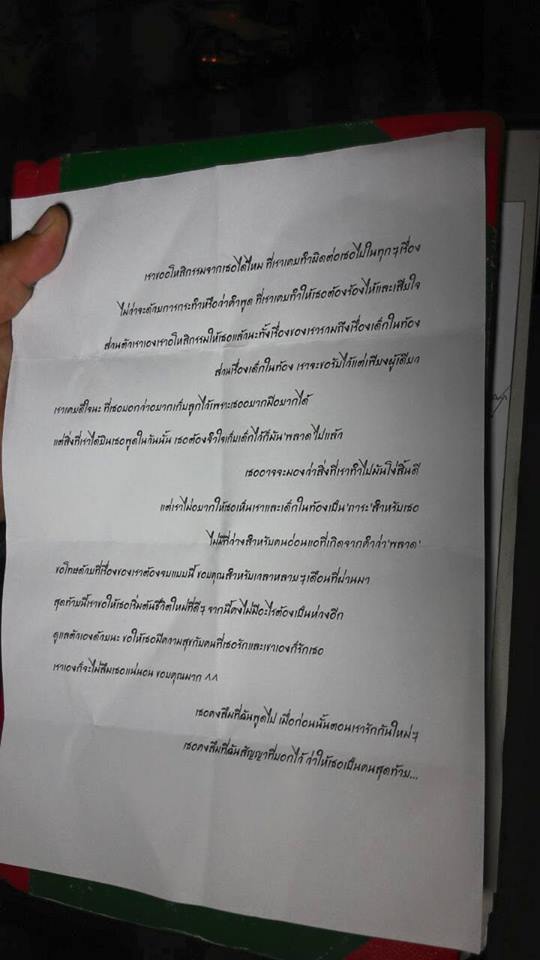 เราขออโหสิกรรมจากเธอได้ไหม ที่เราเคยทำผิดต่อเธอไปในทุกๆเรื่อง
ไม่ว่าจะด้วยการกระทำหรือว่าคำพูด ที่เราเคยทำให้เธอต้องร้องไห้และเสียใจ
ส่วนตัวเราเองเราอโหสิกรรมให้เธอแล้วนะทั้งเรื่องของเรารวมถึงเรื่องเด็กในท้อง
ส่วนเรื่องเด็กในท้อง เราจะขอรับไว้แต่เพียงผู้เดียว
เราเคยดีใจนะ ที่เธอบอกว่าอยากเก็บลูกไว้เพราะเธออยากมีอยากได้
แต่สิ่งที่เราได้ยินเธอพูดในวันนั้น เธอต้องจำใจเก็บเด็กไว้ก็มัน'พลาด'ไปแล้ว
เธออาจจะมองว่าสิ่งที่เราทำไปมันโง่สิ้นดี
แต่เราไม่อยากให้เธอเห็นเราและเด็กในท้องเป็น'ภาระ'สำหรับเธอ
ไม่มีที่ว่างสำหรับคนอ่อนแอที่เกิดจากคำว่า'พลาด'
ขอโทษด้วยที่เรื่องของเราต้องจบแบบนี้ ขอบคุณสำหรับเวลาหลายๆเดือนที่ผ่านมา
สุดท้ายนี้เราขอให้เธอเริ่มต้นชีวิตใหม่ที่ดีๆ จากนี้คงไม่มีอะไรต้องเป็นห่วงอีก
ดูแลตัวเองด้วยนะ ขอให้เธอมีความสุขกับคนที่เธอรักและเขาเองก็รักเธอ
เราเองก็จะไม่ลืมเธอแน่นอน ขอบคุณมาก ^^
เธอคงลืมที่ฉันพูดไป เมื่อก่อนนั้นตอนเรารักกันใหม่ๆ
เธอคงลืมที่ฉันสัญญาที่บอกไว้ ว่าให้เธอเป็นคนสุดท้าย...